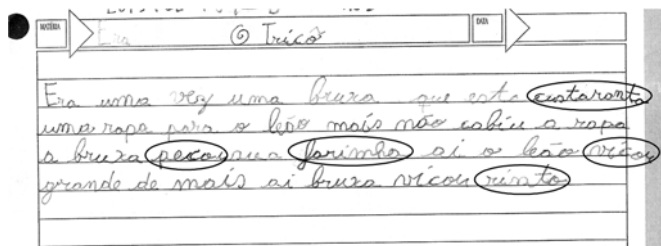 MATÉRIA
DATA
Era
O Tricô
Era uma vez uma bruxa que esta custaranta
uma rapa para o leão mais não cabiu a rapa
a bruxa pecou farinha ai o leão vicou
grande de mais ai bruxa vicou rinto